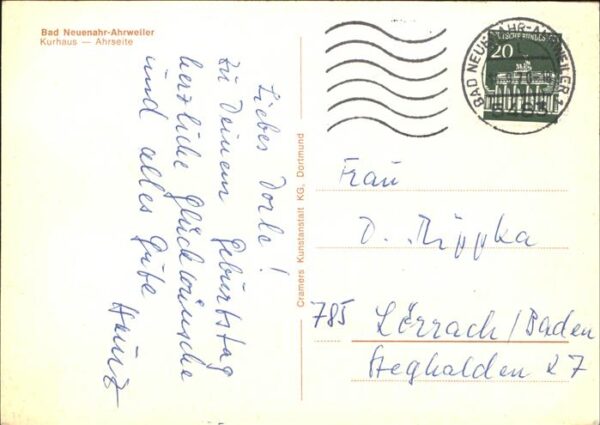 Bad Neuenahr-Ahrweiler
Kurhaus — Ahrseite
Liebes Dorle!
zu Deinem Geburtstag
herzliche Glückwünsche
und alles Gute
Heinz
Cramers Kunstanstalt KG, Dortmund
BAD NEUENAHR-AHRWEILER 1
20
Frau
D. Rippka
785 Lörrach/Baden
Steghalden 27